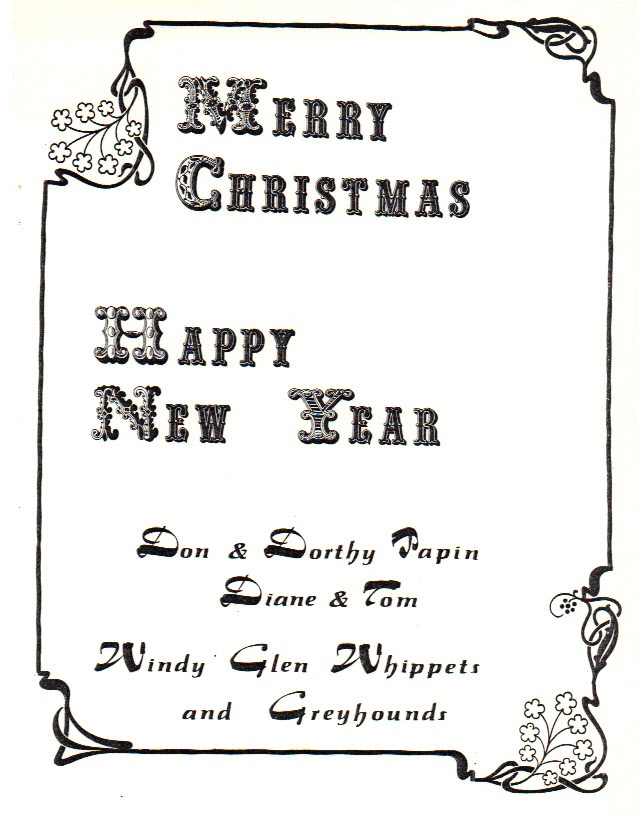 MERRY
CHRISTMAS
HAPPY
NEW YEAR
Don & Dorthy Papin
Diane & Tom
Windy Glen Whippets
and Greyhounds